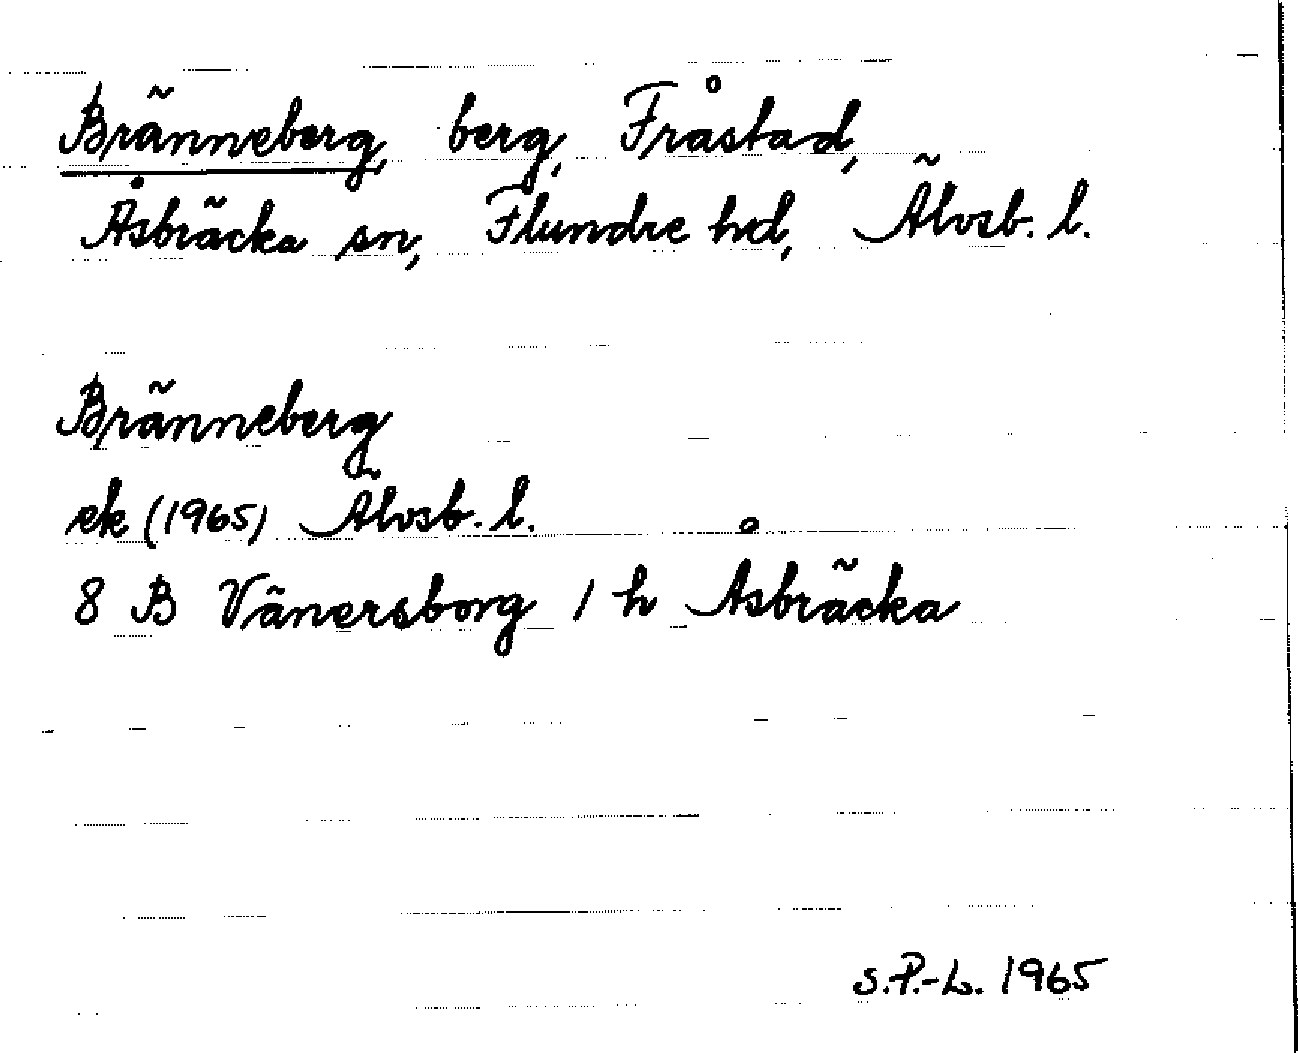 Bränneberg, berg, Fråstad,
Åsbräcka sn, Flundre hd, Älvsb. l.
Bränneberg
ek (1965) Älvsb. l.
8 B Vänersborg 1 h Åsbräcka
S.P.-L. 1965